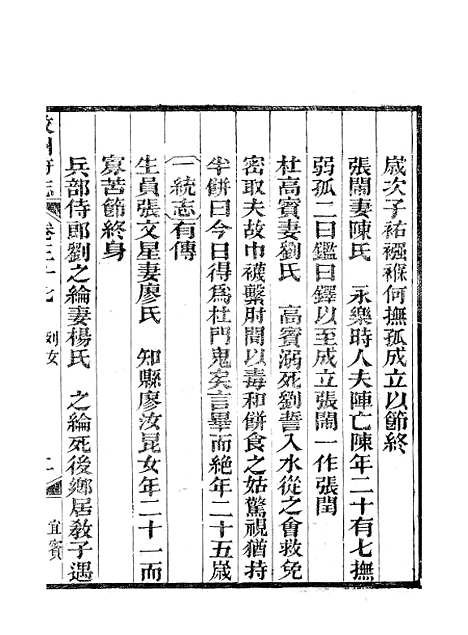 歲次子祐襁褓何撫孤成立以節終
張闇妻陳氏　永樂時人夫陣亡陳年二十有七撫
弱孤二曰鑑曰鐸以至成立張闇一作張閏
杜高賓妻劉氏　高賓溺死劉誓入水從之會救免
密取夫故巾襪繫肘間以毒和餅食之姑驚視猶持
半餅曰今日得為杜門鬼矣言畢而絕年二十五歲
一統志有傳
生員張文星妻廖氏　知縣廖汝昆女年二十一而
寡苦節終身
兵部侍郎劉之綸妻楊氏　之綸死後鄉居敎子遇
州府志　卷三十七　列女　宜賓